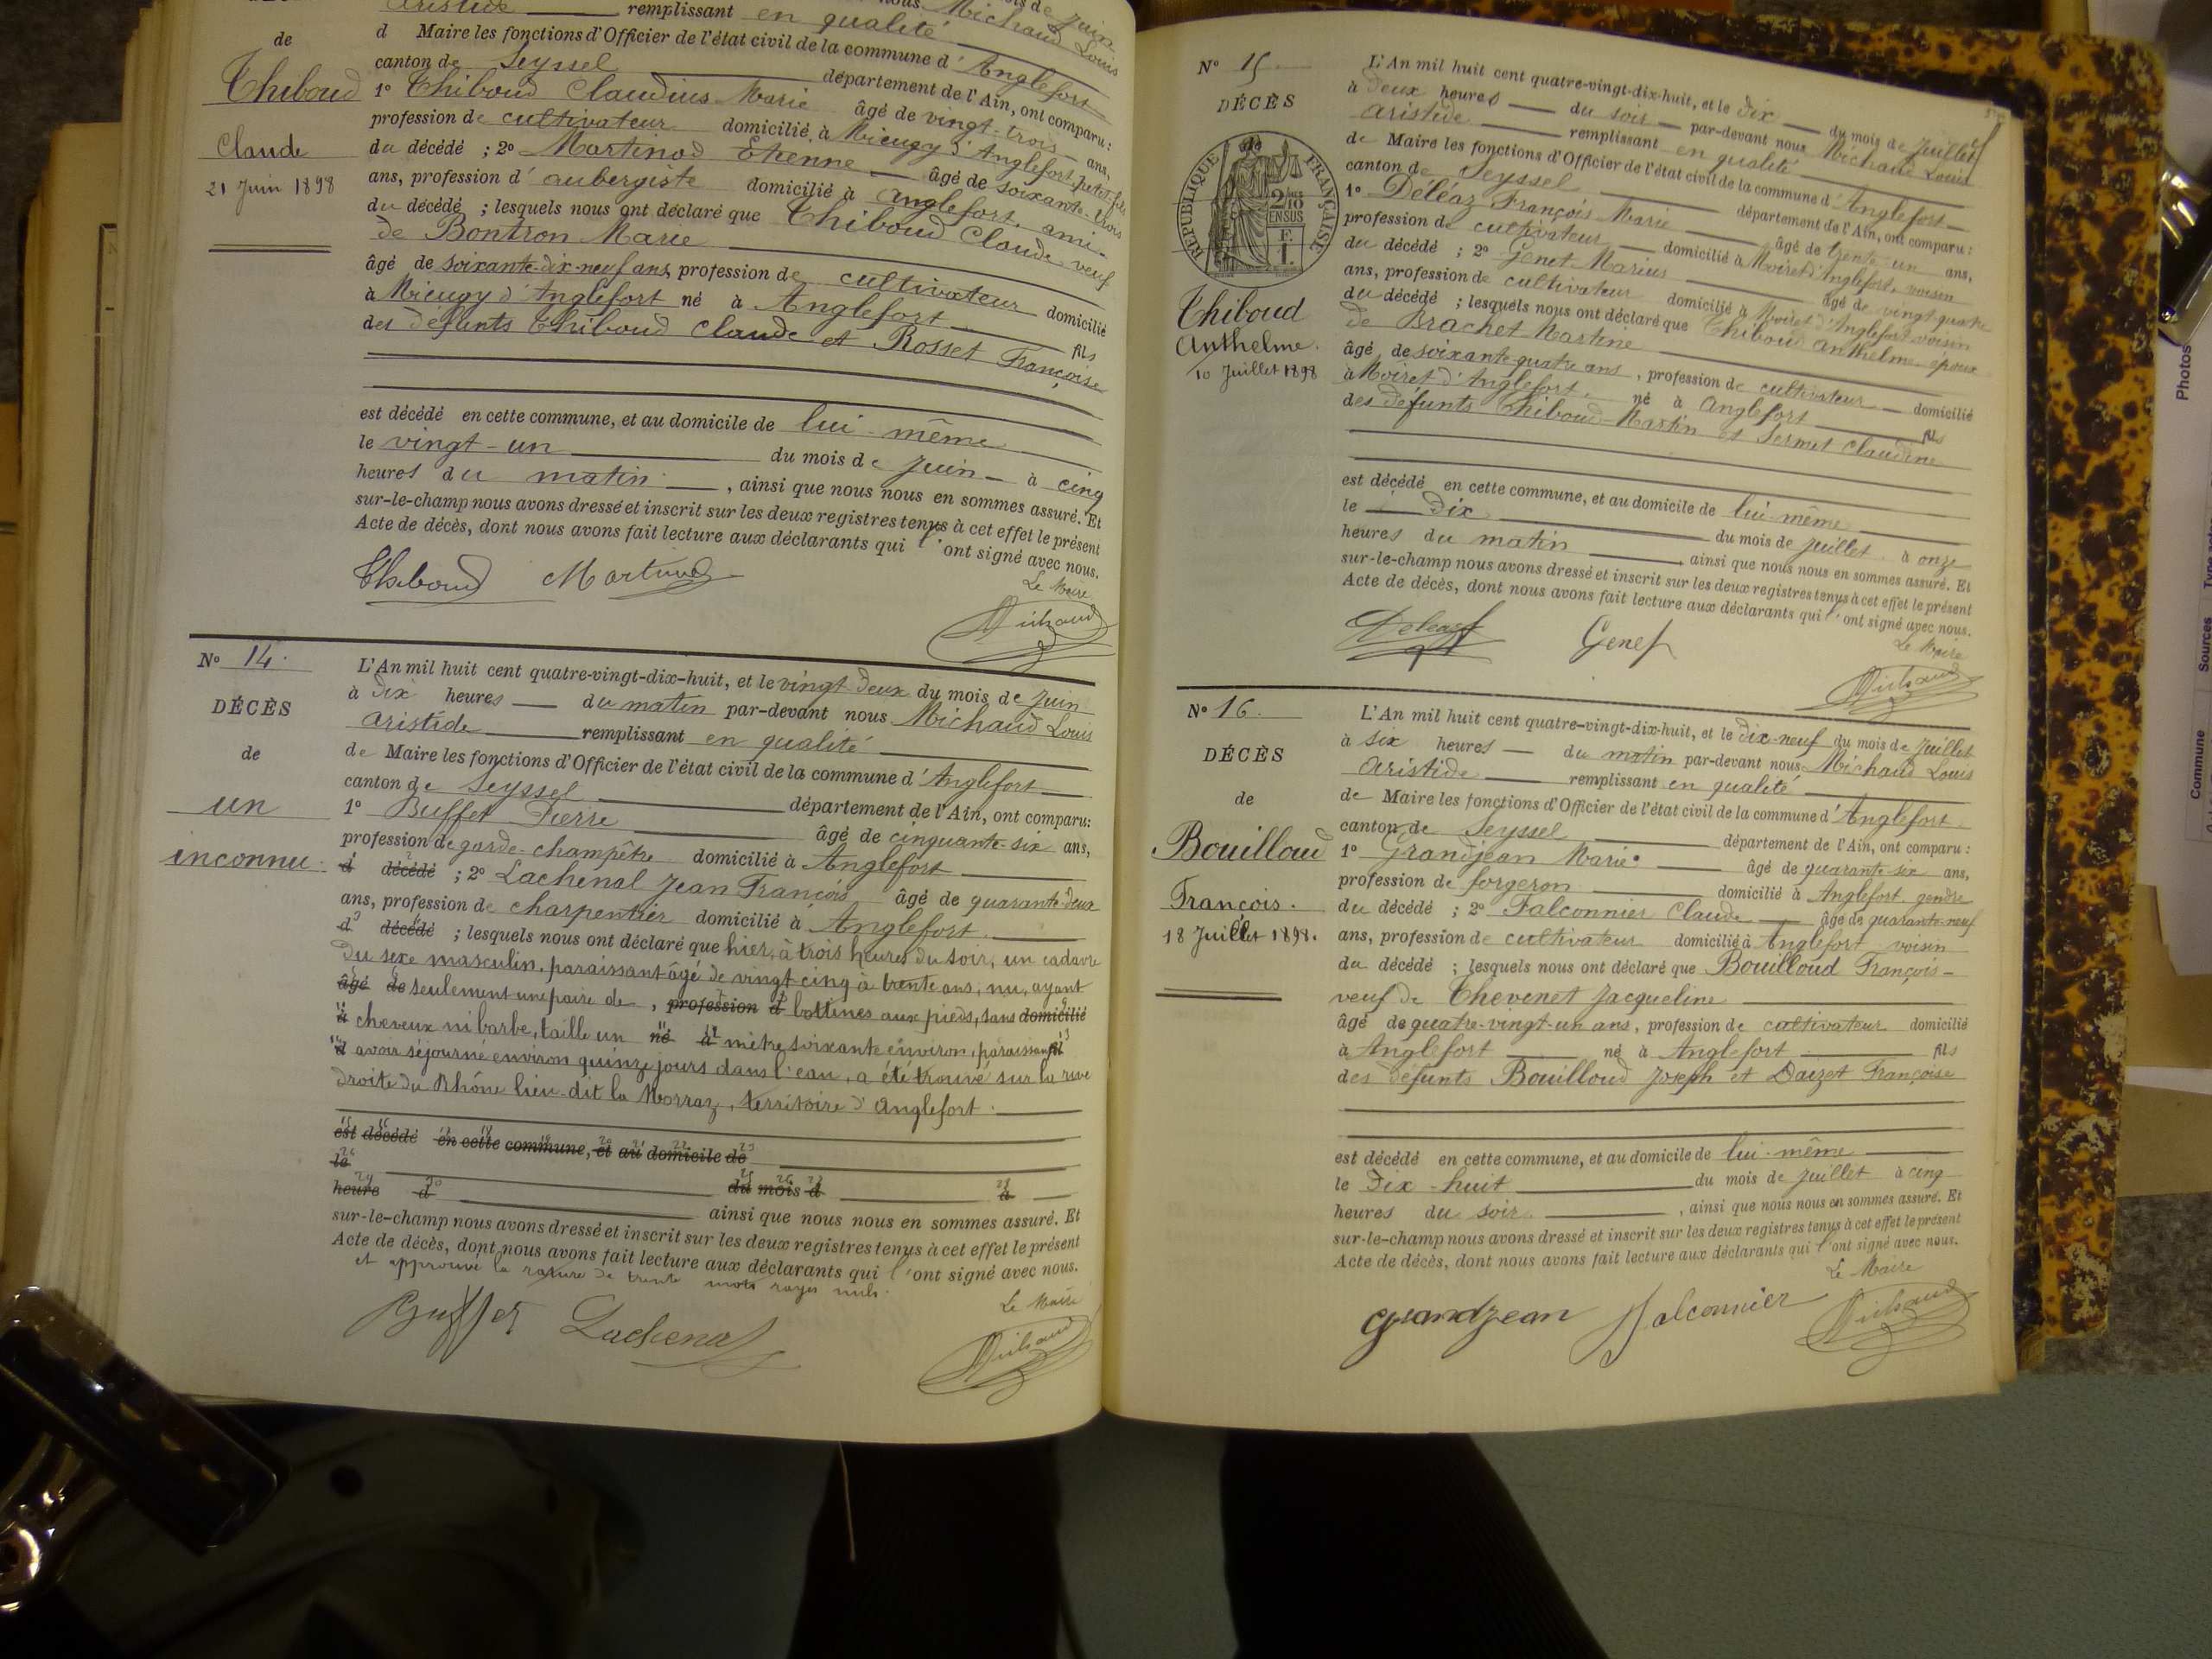 aristide remplissant en qualité
d Maire les fonctions d'Officier de l'état civil de la commune d'Anglefort
de
canton de Seyssel département de l'Ain, ont comparu:
Thiboud
1° Thiboud Claudius Marie âgé de vingt-trois ans,
profession de cultivateur domicilié à Mieugy d'Anglefort petit-fils
Claude
du décédé ; 2° Martinod Etienne âgé de soixante-trois
21 Juin 1898
ans, profession d'aubergiste domicilié à Anglefort, ami
du décédé ; lesquels nous ont déclaré que Thiboud Claude veuf
de Bontron Marie
âgé de soixante-dix-neuf ans, profession de cultivateur domicilié
à Mieugy d'Anglefort né à Anglefort fils
des défunts Thiboud Claude et Rosset Françoise
est décédé en cette commune, et au domicile de lui-même
le vingt-un du mois de Juin à cinq
heures du matin, ainsi que nous nous en sommes assuré. Et
sur-le-champ nous avons dressé et inscrit sur les deux registres tenus à cet effet le présent
Acte de décès, dont nous avons fait lecture aux déclarants qui l'ont signé avec nous.
Le Maire
Thiboud Martinod Michaud
N° 14.
DÉCÈS
de
un
inconnu.
L'An mil huit cent quatre-vingt-dix-huit, et le vingt-deux du mois de Juin
à dix heures du matin par-devant nous Michaud Louis
aristide remplissant en qualité
de Maire les fonctions d'Officier de l'état civil de la commune d'Anglefort
canton de Seyssel département de l'Ain, ont comparu:
1° Buffet Pierre âgé de cinquante-six ans,
profession de garde-champêtre domicilié à Anglefort
d décédé ; 2° Lachenal Jean François âgé de quarante-deux
ans, profession de charpentier domicilié à Anglefort
d décédé ; lesquels nous ont déclaré que hier, à trois heures du soir, un cadavre
du sexe masculin, paraissant âgé de vingt cinq à trente ans, nu, ayant
âgé de seulement une paire de, profession d bottines aux pieds, sans domicilié
à cheveux ni barbe, taille un né à mètre soixante environ, paraissant
d avoir séjourné environ quinze jours dans l'eau, a été trouvé sur la rive
droite du Rhône lieu-dit la Morraz, territoire d'Anglefort.
est décédé en cette commune, et au domicile de
le
heure d du mois d à
ainsi que nous nous en sommes assuré. Et
sur-le-champ nous avons dressé et inscrit sur les deux registres tenus à cet effet le présent
Acte de décès, dont nous avons fait lecture aux déclarants qui l'ont signé avec nous.
et approuvé la rature de trente mots rayés nuls.
Le Maire
Buffet Lachenal Michaud
N° 15
DÉCÈS
RÉPUBLIQUE FRANÇAISE
2/10 EN SUS
Thiboud
Anthelme.
10 Juillet 1898
L'An mil huit cent quatre-vingt-dix-huit, et le dix du mois de Juillet
à deux heures du soir par-devant nous Michaud Louis
aristide remplissant en qualité
de Maire les fonctions d'Officier de l'état civil de la commune d'Anglefort
canton de Seyssel département de l'Ain, ont comparu:
1° Déléaz François Marie âgé de trente-un ans,
profession de cultivateur domicilié à Moiret d'Anglefort, voisin
du décédé ; 2° Genet Marius âgé de vingt-quatre
ans, profession de cultivateur domicilié à Moiret d'Anglefort voisin
du décédé ; lesquels nous ont déclaré que Thiboud Anthelme époux
de Brachet Martine
âgé de soixante-quatre ans, profession de cultivateur domicilié
à Moiret d'Anglefort né à Anglefort fils
des défunts Thiboud Martin et Sermet Claudine
est décédé en cette commune, et au domicile de lui-même
le dix du mois de Juillet à onze
heures du matin, ainsi que nous nous en sommes assuré. Et
sur-le-champ nous avons dressé et inscrit sur les deux registres tenus à cet effet le présent
Acte de décès, dont nous avons fait lecture aux déclarants qui l'ont signé avec nous.
Le Maire
Deleaz Genet Michaud
N° 16.
DÉCÈS
de
Bouilloud
François.
18 Juillet 1898.
L'An mil huit cent quatre-vingt-dix-huit, et le dix-neuf du mois de Juillet
à six heures du matin par-devant nous Michaud Louis
aristide remplissant en qualité
de Maire les fonctions d'Officier de l'état civil de la commune d'Anglefort
canton de Seyssel département de l'Ain, ont comparu:
1° Grandjean Marie âgé de quarante-six ans,
profession de forgeron domicilié à Anglefort gendre
du décédé ; 2° Falconnier Claude âgé de quarante-neuf
ans, profession de cultivateur domicilié à Anglefort voisin
du décédé ; lesquels nous ont déclaré que Bouilloud François
veuf de Thevenet Jacqueline
âgé de quatre-vingt-un ans, profession de cultivateur domicilié
à Anglefort né à Anglefort fils
des défunts Bouilloud Joseph et Daizet Françoise
est décédé en cette commune, et au domicile de lui-même
le dix-huit du mois de Juillet à cinq
heures du soir, ainsi que nous nous en sommes assuré. Et
sur-le-champ nous avons dressé et inscrit sur les deux registres tenus à cet effet le présent
Acte de décès, dont nous avons fait lecture aux déclarants qui l'ont signé avec nous.
Le Maire
Grandjean Falconnier Michaud
Photos
Sources
Commune